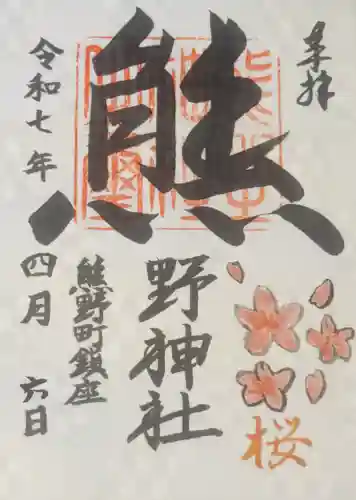 奉拝
熊
野神社
桜
熊野町鎮座
令和七年
四月六日